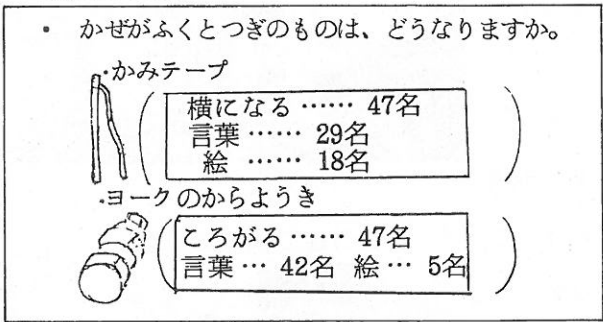 ・ かぜがふくとつぎのものは、どうなりますか。
・かみテープ
横になる …… 47名
言葉 …… 29名
絵 …… 18名
・ヨークのからようき
ころがる …… 47名
言葉 … 42名 絵 … 5名